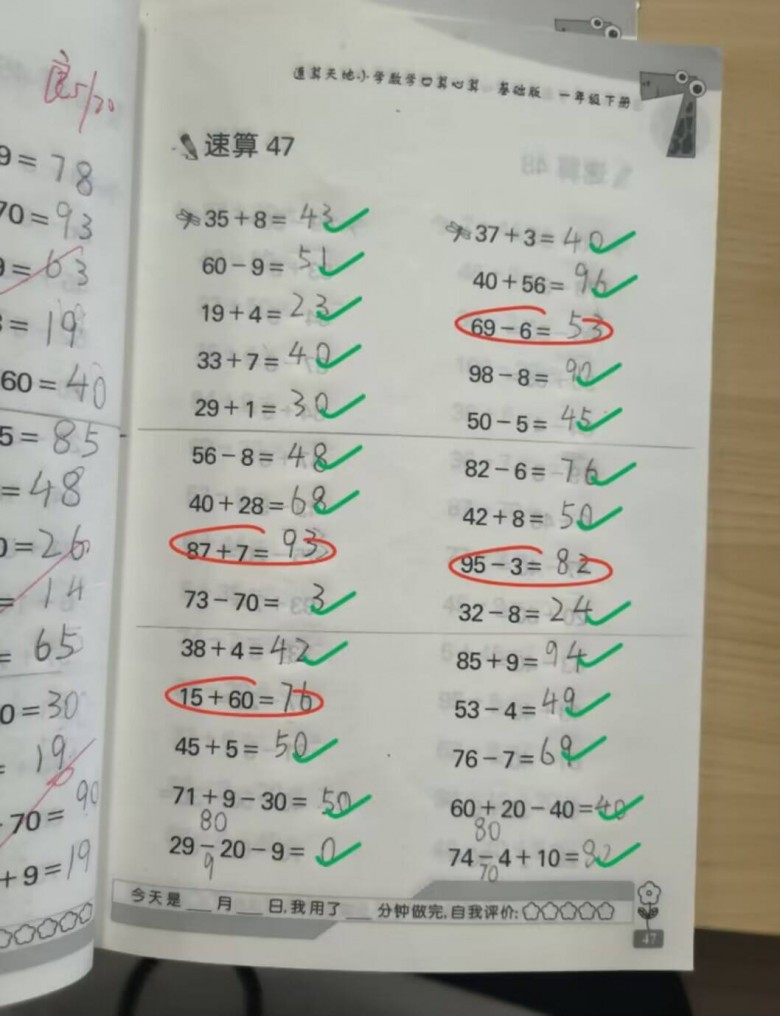 良 5/20
9=78
70=93
9=63
=19
60=40
5=85
=48
0=26
=14
=65
0=30
19
70=90
+9=19
通算天地小学数学口算心算 基础版 一年级下册
速算 47
35+8=43
60-9=51
19+4=23
33+7=40
29+1=30
56-8=48
40+28=68
87+7=93
73-70=3
38+4=42
15+60=76
45+5=50
71+9-30=50
80
29-20-9=0
9
37+3=40
40+56=96
69-6=53
98-8=90
50-5=45
82-6=76
42+8=50
95-3=82
32-8=24
85+9=94
53-4=49
76-7=69
60+20-40=40
80
74-4+10=
70
今天是___月___日,我用了___分钟做完,自我评价:
47